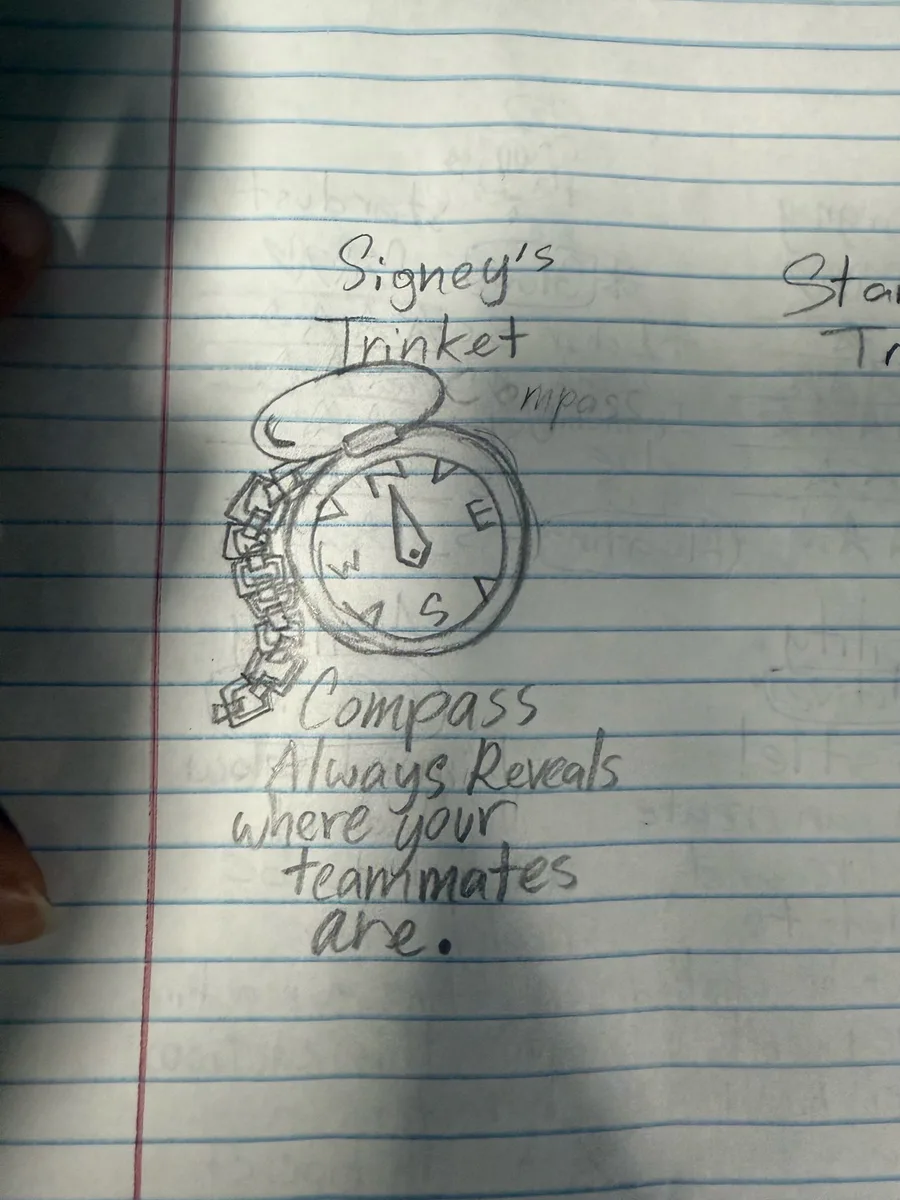 Signey's
Trinket
Compass
N
E
W
S
Compass
Always Reveals
where your
teammates
are.
Sta
Tr